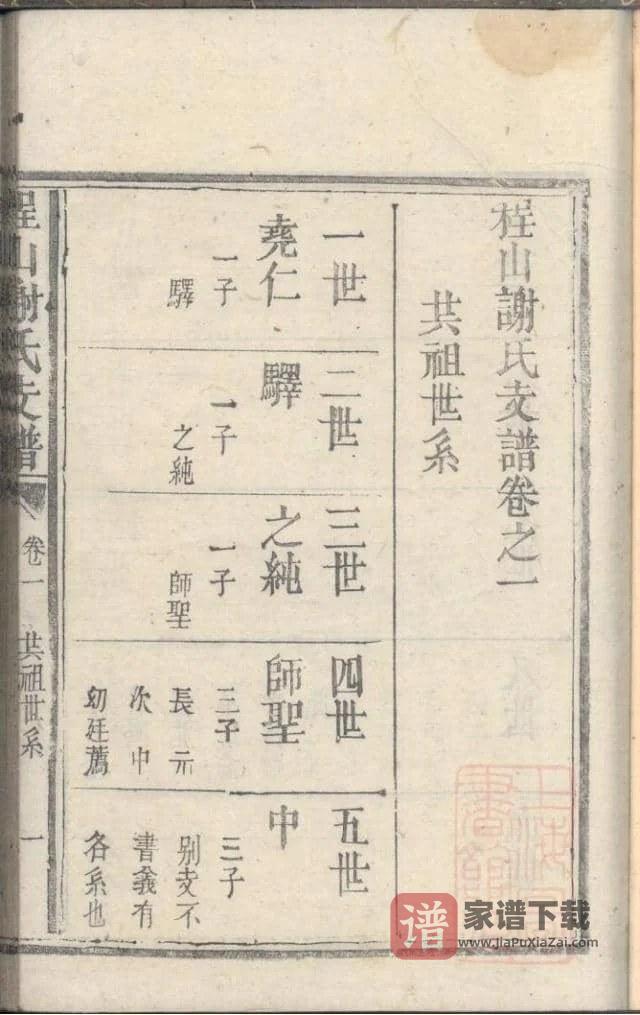 桂山謝氏支譜卷之一
共祖世系
一世
堯仁
一子
驛
二世
驛
一子
之純
三世
之純
一子
師聖
四世
師聖
三子
長元
次中
幼廷薦
五世
中
三子
別支不
書義有
各系也
山謝氏支譜
卷一
共祖世系
一
谱
家谱下载
www.JiaPuXiaZai.com